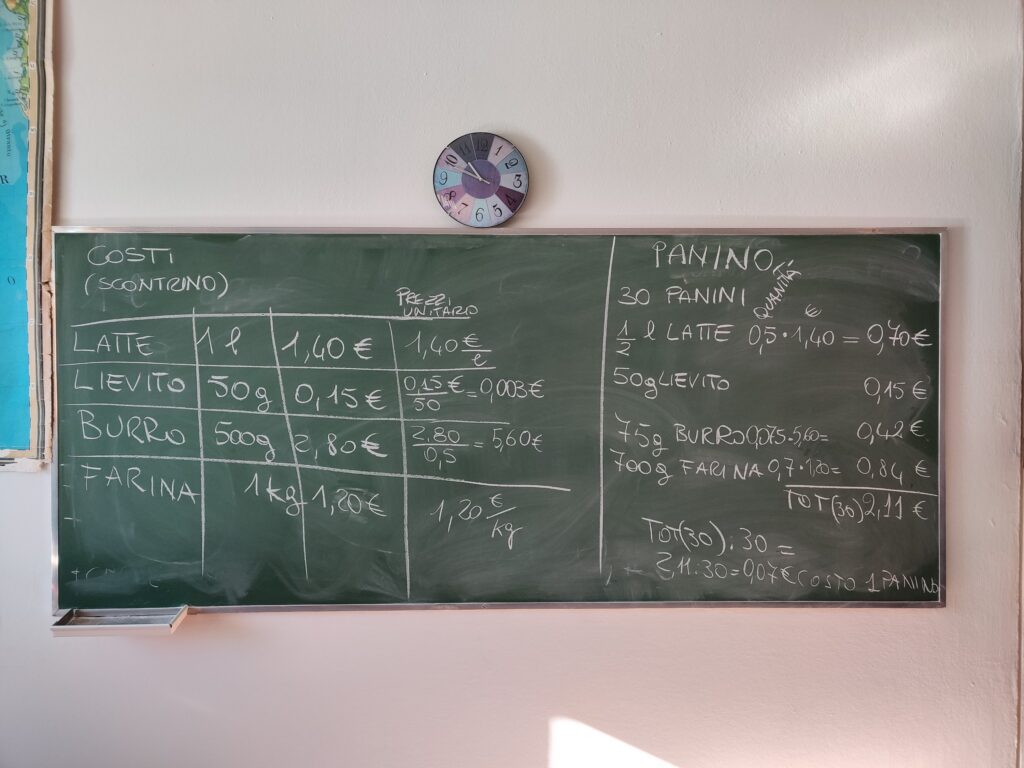 COSTI
(SCONTRINO)
PREZZI
UNITARIO
LATTE 1 l 1,40 € 1,40 €/l
LIEVITO 50g 0,15 € 0,15 €/50 = 0,003 €
BURRO 500g 2,80 € 2,80/0,5 = 5,60 €
FARINA 1 kg 1,20 € 1,20 €/kg
PANINO
30 PANINI QUANTITÀ €
1/2 l LATTE 0,5 · 1,40 = 0,70 €
50g LIEVITO 0,15 €
75g BURRO 0,075 · 5,60 = 0,42 €
700g FARINA 0,7 · 1,20 = 0,84 €
TOT(30) 2,11 €
TOT(30) : 30 =
2,11 : 30 = 0,07 € COSTO 1 PANINO
12 1 2 3 5 6 7 8 9 10